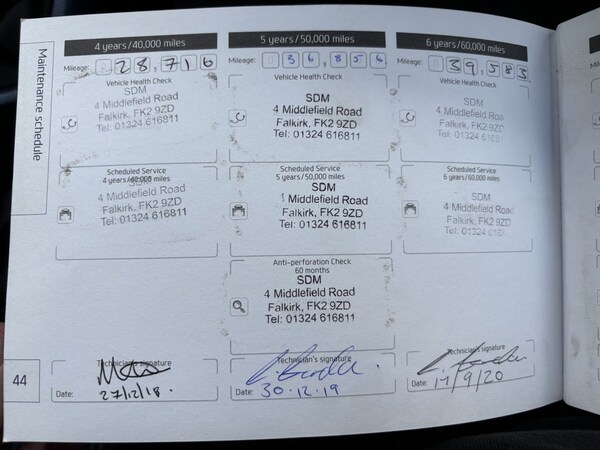 Maintenance schedule
4 years/40,000 miles
Mileage: 0 28,716
Vehicle Health Check
SDM
4 Middlefield Road
Falkirk, FK2 9ZD
Tel: 01324 616811
Scheduled Service
4 years/40,000 miles
SDM
4 Middlefield Road
Falkirk, FK2 9ZD
Tel: 01324 616811
Technician's signature
Date: 27/12/18.
5 years/50,000 miles
Mileage: 0 36,856
Vehicle Health Check
SDM
4 Middlefield Road
Falkirk, FK2 9ZD
Tel: 01324 616811
Scheduled Service
5 years/50,000 miles
SDM
4 Middlefield Road
Falkirk, FK2 9ZD
Tel: 01324 616811
Anti-perforation Check
60 months
SDM
4 Middlefield Road
Falkirk, FK2 9ZD
Tel: 01324 616811
Technician's signature
Date: 30.12.19
6 years/60,000 miles
Mileage: 0 39,583
Vehicle Health Check
SDM
4 Middlefield Road
Falkirk, FK2 9ZD
Tel: 01324 616811
Scheduled Service
6 years/60,000 miles
SDM
4 Middlefield Road
Falkirk, FK2 9ZD
Tel: 01324 6168
Technician's signature
Date: /9/20
44